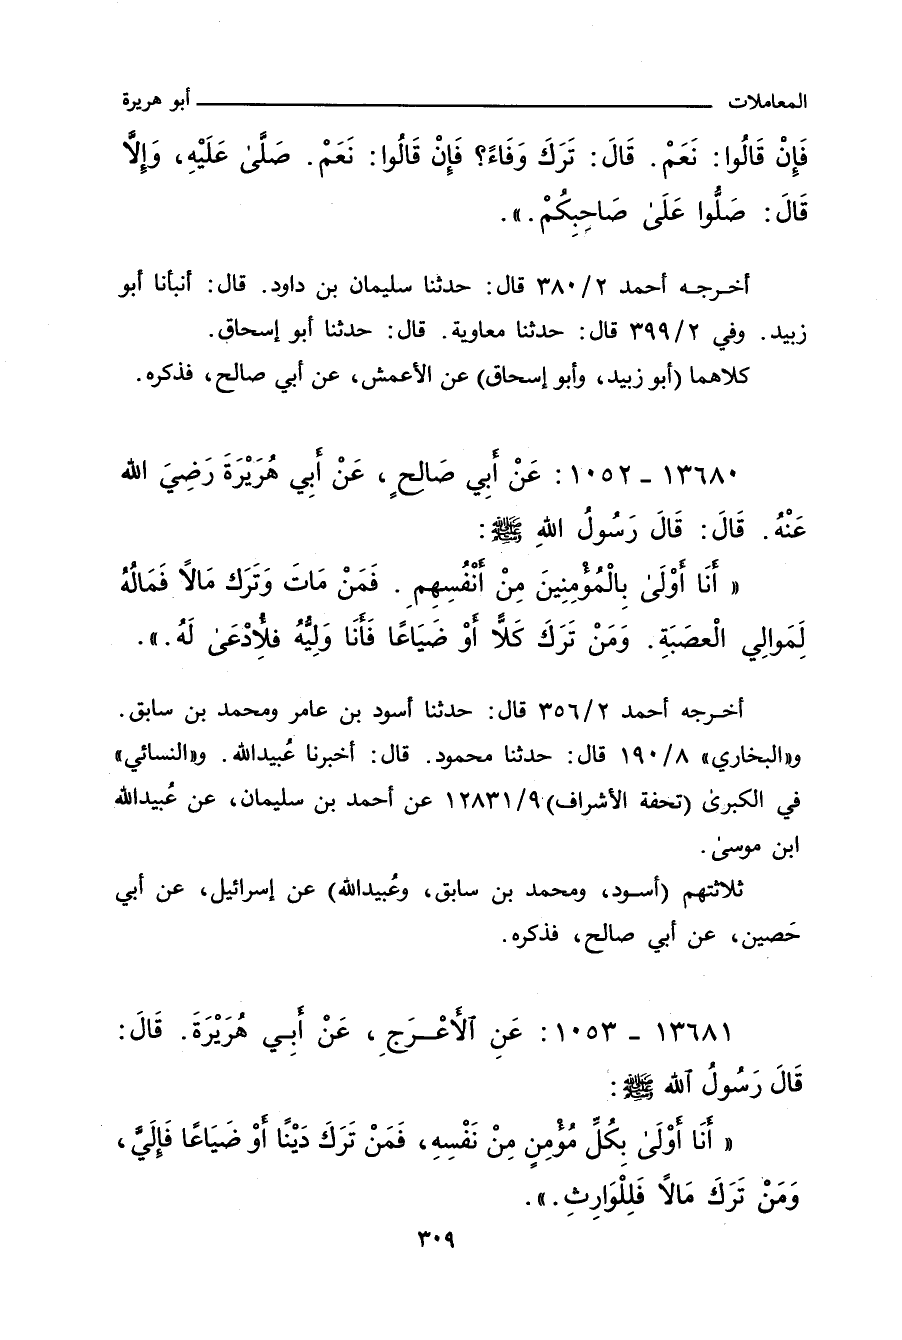 المعاملات ـــــــــــــــــــــــــــــــــــــ أبو هريرة
فَإِنْ قَالُوا: نَعَمْ. قَالَ: تَرَكَ وَفَاءً؟ فَإِنْ قَالُوا: نَعَمْ. صَلَّىٰ عَلَيْهِ، وَإِلَّا
قَالَ: صَلُّوا عَلَىٰ صَاحِبِكُمْ.».
أخرجه أحمد ٢/٣٨٠ قال: حدثنا سليمان بن داود. قال: أنبأنا أبو
زبيد. وفي ٢/٣٩٩ قال: حدثنا معاوية. قال: حدثنا أبو إسحاق.
كلاهما (أبو زبيد، وأبو إسحاق) عن الأعمش، عن أبي صالح، فذكره.
١٣٦٨٠ - ١٠٥٢: عَنْ أَبِي صَالِحٍ، عَنْ أَبِي هُرَيْرَةَ رَضِيَ الله
عَنْهُ. قَالَ: قَالَ رَسُولُ اللهِ ﷺ:
« أَنَا أَوْلَىٰ بِالْمُؤْمِنِينَ مِنْ أَنْفُسِهِمِ. فَمَنْ مَاتَ وَتَرَكَ مَالًا فَمَالُهُ
لِمَوالِي الْعصَبَةِ. وَمَنْ تَرَكَ كَلًّا أَوْ ضَيَاعًا فَأَنَا وَلِيُّهُ فلْأُدْعَىٰ لَهُ.».
أخرجه أحمد ٢/٣٥٦ قال: حدثنا أسود بن عامر ومحمد بن سابق.
و«البخاري» ٨/١٩٠ قال: حدثنا محمود. قال: أخبرنا عُبيدالله. و«النسائي»
في الكبرىٰ (تحفة الأشراف) ٩/١٢٨٣١ عن أحمد بن سليمان، عن عُبيدالله
ابن موسىٰ.
ثلاثتهم (أسود، ومحمد بن سابق، وعُبيدالله) عن إسرائيل، عن أبي
حَصين، عن أبي صالح، فذكره.
١٣٦٨١ - ١٠٥٣: عَنِ ٱلْأَعْرَجِ، عَنْ أَبِي هُرَيْرَةَ. قَالَ:
قَالَ رَسُولُ ٱلله ﷺ:
« أَنَا أَوْلَىٰ بِكُلِّ مُؤْمِنٍ مِنْ نَفْسِهِ، فَمَنْ تَرَكَ دَيْنًا أَوْ ضَيَاعًا فَإِلَيَّ،
وَمَنْ تَرَكَ مَالًا فَلِلْوَارِثِ.».
٣٠٩